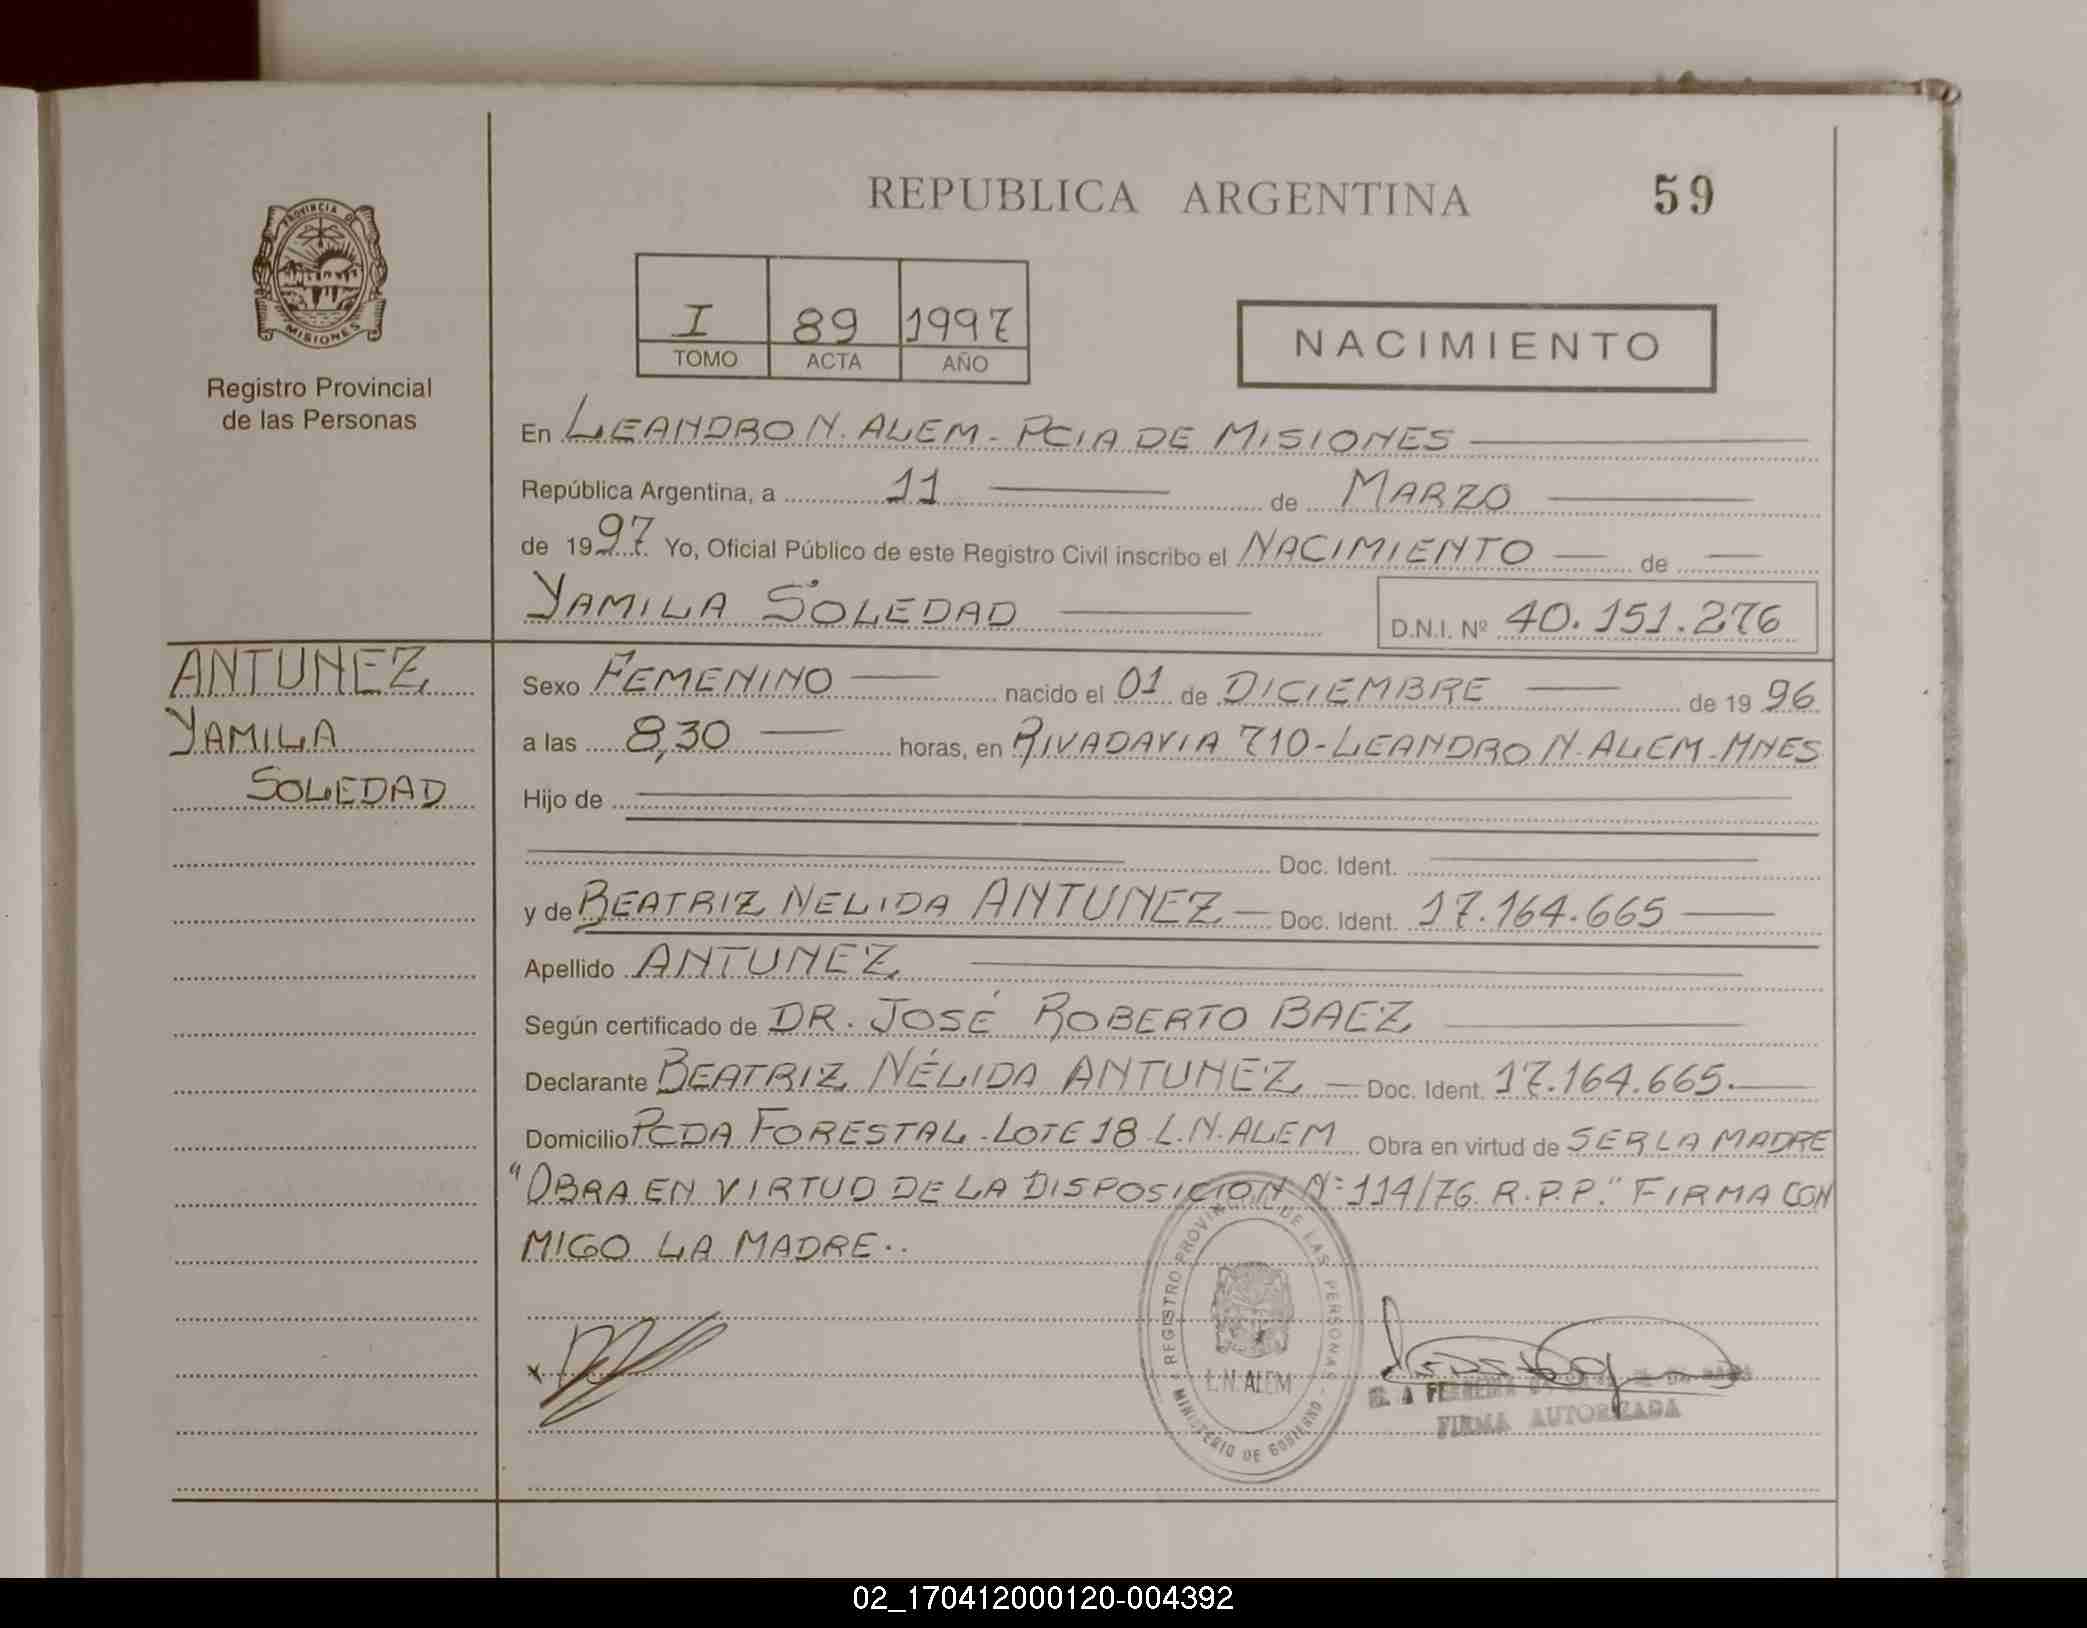 REPUBLICA ARGENTINA
59
PROVINCIA DE
MISIONES
Registro Provincial
de las Personas
I 89 1997
TOMO ACTA AÑO
NACIMIENTO
En LEANDRO N. ALEM - PCIA DE MISIONES
República Argentina, a 11 de MARZO
de 1997. Yo, Oficial Público de este Registro Civil inscribo el NACIMIENTO de
YAMILA SOLEDAD
D.N.I. Nº 40.151.276
ANTUNEZ
YAMILA
SOLEDAD
Sexo FEMENINO nacido el 01 de DICIEMBRE de 1996
a las 8,30 horas, en RIVADAVIA 710 - LEANDRO N. ALEM - MNES
Hijo de
Doc. Ident.
y de BEATRIZ NELIDA ANTUNEZ Doc. Ident. 17.164.665
Apellido ANTUNEZ
Según certificado de DR. JOSÉ ROBERTO BAEZ
Declarante BEATRIZ NÉLIDA ANTUNEZ Doc. Ident. 17.164.665.
Domicilio PCDA FORESTAL - LOTE 18 - L.N. ALEM Obra en virtud de SER LA MADRE
"OBRA EN VIRTUD DE LA DISPOSICION Nº 114/76 R.P.P." FIRMA CON
MIGO LA MADRE..
REGISTRO PROVINCIAL DE LAS PERSONAS
L.N. ALEM
MINISTERIO DE GOBIERNO
FIRMA AUTORIZADA
02_170412000120-004392